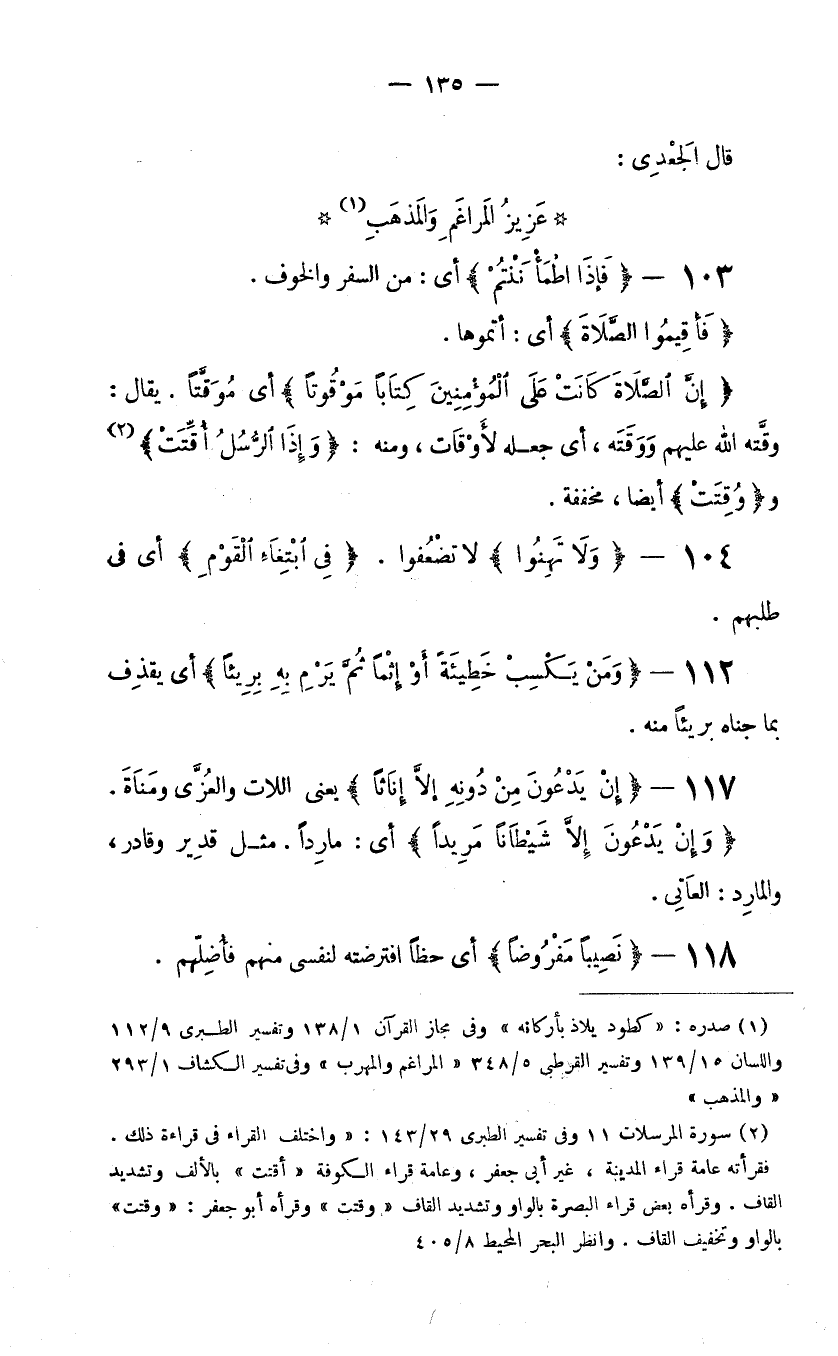 — ١٣٥ —
قال الجَعْدِى :
* عَزِيزُ المَراغَمِ وَالمَذهَبِ(١) *
١٠٣ — ﴿ فَإِذَا اطْمَأْنَنْتُمْ ﴾ أى : من السفر والخوف .
﴿ فَأَقِيمُوا الصَّلَاةَ ﴾ أى : أتموها .
﴿ إِنَّ الصَّلَاةَ كَانَتْ عَلَى الْمُؤْمِنِينَ كِتَاباً مَوْقُوتاً ﴾ أى مُوَقَّتاً . يقال :
وقَّته الله عليهم وَوَقَتَه ، أى جعله لأَوْقَات ، ومنه : ﴿ وَإِذَا الرُّسُلُ أُقِّتَتْ ﴾(٢)
و﴿ وُقِتَتْ ﴾ أيضا ، مخففة .
١٠٤ — ﴿ وَلَا تَهِنُوا ﴾ لا تضْعُفوا . ﴿ فِى ابْتِغَاء الْقَوْمِ ﴾ أى فى
طلبهم .
١١٢ — ﴿ وَمَنْ يَكْسِبْ خَطِيئَةً أَوْ إِثْماً ثُمَّ يَرْمِ بِهِ بَرِيئاً ﴾ أى يقذف
بما جناه بريئاً منه .
١١٧ — ﴿ إِنْ يَدْعُونَ مِنْ دُونِهِ إِلاَّ إِنَاثاً ﴾ يعنى اللات والعُزَّى ومَنَاةَ .
﴿ وَإِنْ يَدْعُونَ إِلاَّ شَيْطَاناً مَرِيداً ﴾ أى : مارِداً . مثل قدير وقادر ،
والمارِد : العَاتِى .
١١٨ — ﴿ نَصِيباً مَفْرُوضاً ﴾ أى حظاً افترضته لنفسى منهم فأُضِلّهم .
(١) صدره : « كطود يلاذ بأركانه » وفى مجاز القرآن ١٣٨/١ وتفسير الطبرى ١١٢/٩
واللسان ١٣٩/١٥ وتفسير القرطبى ٣٤٨/٥ « المراغم والمهرب » وفى تفسير الكشاف ٢٩٣/١
« والمذهب »
(٢) سورة المرسلات ١١ وفى تفسير الطبرى ١٤٣/٢٩ : « واختلف القراء فى قراءة ذلك .
فقرأته عامة قراء المدينة ، غير أبى جعفر ، وعامة قراء الكوفة « أقتت » بالألف وتشديد
القاف . وقرأه بعض قراء البصرة بالواو وتشديد القاف « وقتت » وقرأه أبو جعفر : « وقتت»
بالواو وتخفيف القاف . وانظر البحر المحيط ٤٠٥/٨